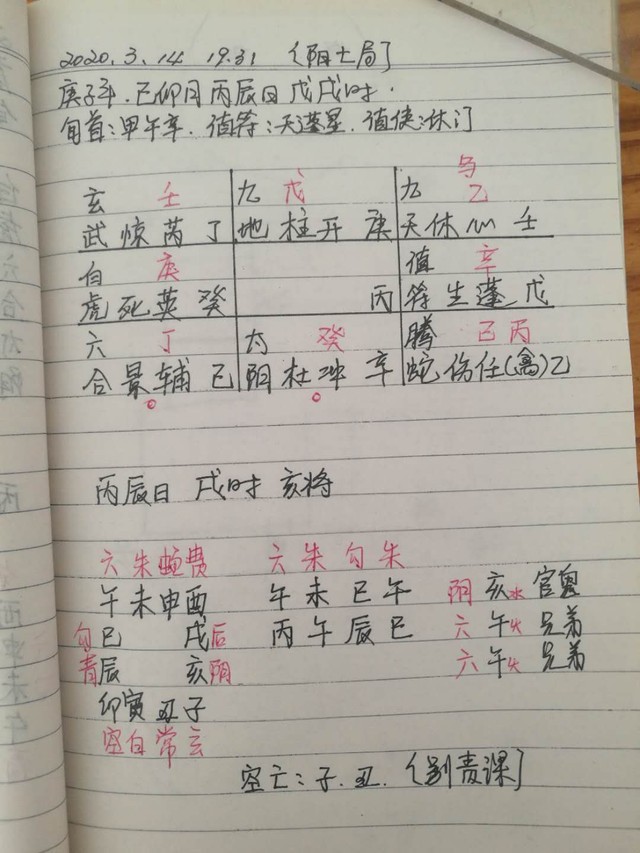 2020.3.14 19.31 (阳七局]
庚子年.己卯月丙辰日戊戌时.
旬首:甲午辛.值符:天蓬星.值使:休门
马
玄 壬 九 戊 九 乙
武惊芮丁 地柱开庚 天休心壬
白 庚 值 辛
虎死英癸 丙 符生蓬戊
六 丁 太 癸 腾 己丙
合景辅己 阴杜冲辛 蛇伤任(禽)乙
丙辰日 戌时 亥将
六朱蛇贵 六朱勾朱
午未申酉 午未巳午 阴亥水官鬼
勾巳 戌后 丙午辰巳 六午火兄弟
青辰 亥阴 六午火兄弟
卯寅丑子
空白常玄
空亡:子.丑.(别责课]